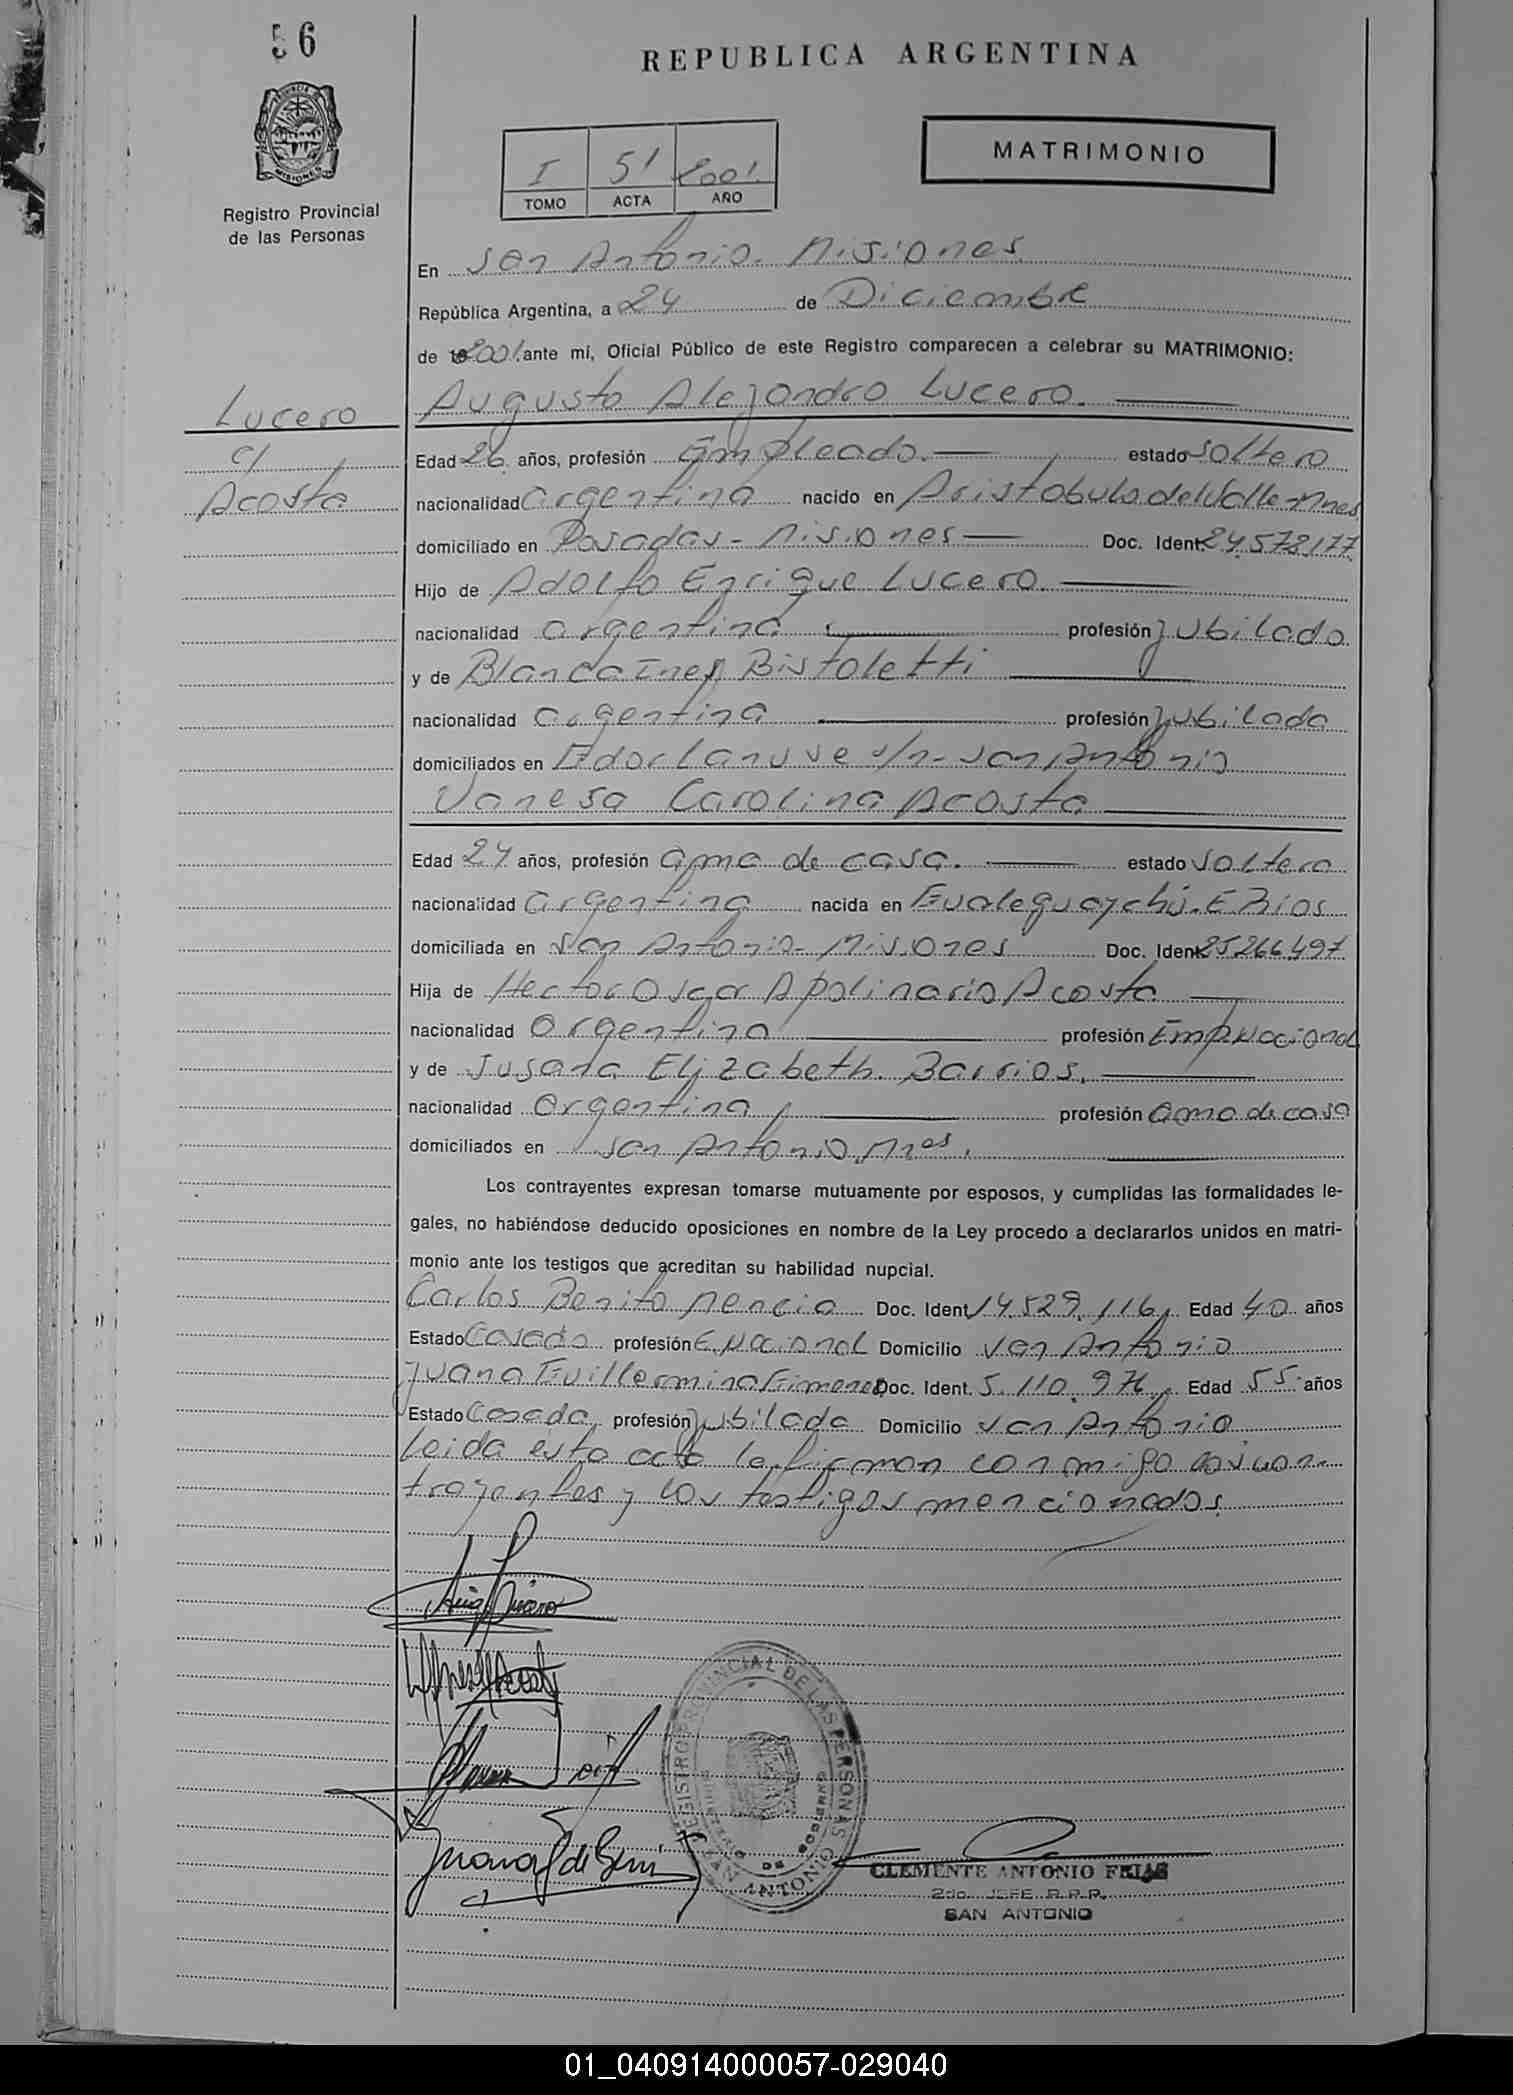 56
REPUBLICA ARGENTINA
MATRIMONIO
I 51 2001.
TOMO ACTA AÑO
MISIONES
Registro Provincial
de las Personas
En San Antonio. Misiones
República Argentina, a 24 de Diciembre
de 2001. ante mí, Oficial Público de este Registro comparecen a celebrar su MATRIMONIO:
Lucero
c/
Acosta
Augusto Alejandro Lucero.
Edad 26 años, profesión Empleado. estado Soltero
nacionalidad argentina nacido en Aristobulo del Valle-Mnes
domiciliado en Posadas - Misiones Doc. Ident. 24.578.177
Hijo de Adolfo Enrique Lucero.
nacionalidad argentina profesión jubilado
y de Blanca Ines Bistoletti
nacionalidad argentina profesión jubilada
domiciliados en s/n - San Antonio
Vanesa Carolina Acosta
Edad 24 años, profesión ama de casa. estado soltera
nacionalidad argentina nacida en Gualeguaychú. E. Rios
domiciliada en San Antonio - Misiones Doc. Ident. 25.266.497
Hija de Hector Oscar Apolinario Acosta
nacionalidad argentina profesión Emp. Nacional
y de Susana Elizabeth. Barrios.
nacionalidad argentina profesión ama de casa
domiciliados en San Antonio. Mnes.
Los contrayentes expresan tomarse mutuamente por esposos, y cumplidas las formalidades le-
gales, no habiéndose deducido oposiciones en nombre de la Ley procedo a declararlos unidos en matri-
monio ante los testigos que acreditan su habilidad nupcial.
Carlos Benito Mencia Doc. Ident. 14.529.116 Edad 40 años
Estado Casado profesión E. Nacional Domicilio San Antonio
Juana Guillermina Gimenez Doc. Ident. 5.110.976 Edad 55 años
Estado Casada profesión jubilada Domicilio San Antonio
Leida esta acta la firman conmigo los con-
trayentes y los testigos mencionados.
REGISTRO PROVINCIAL DE LAS PERSONAS
SAN ANTONIO
CLEMENTE ANTONIO FRIAS
2do. JEFE R.P.P.
SAN ANTONIO
01_040914000057-029040